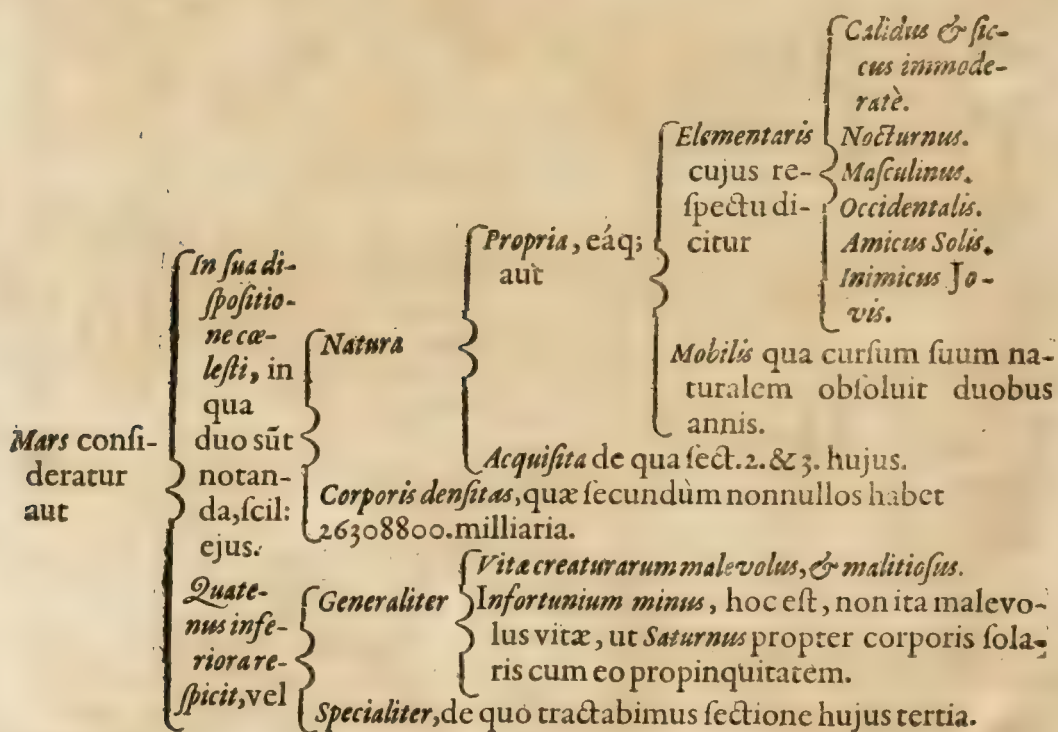 Mars conſi-
deratur
aut
In ſua di-
ſpoſitio-
ne cœ-
leſti, in
qua
duo sūt
notan-
da, ſcil:
ejus.
Natura
Propria, eáq;
aut
Elementaris
cujus re-
ſpectu di-
citur
Calidus & ſic-
cus immode-
ratè.
Nocturnus.
Maſculinus.
Occidentalis.
Amicus Solis.
Inimicus Jo-
vis.
Mobilis qua curſum ſuum na-
turalem obſoluit duobus
annis.
Acquiſita de qua ſect. 2. & 3. hujus.
Corporis denſitas, quæ ſecundùm nonnullos habet
26308800. milliaria.
Quate-
nus infe-
riora re-
ſpicit, vel
Generaliter
Vitæ creaturarum malevolus, & malitioſus.
Infortunium minus, hoc eſt, non ita malevo-
lus vitæ, ut Saturnus propter corporis ſola-
ris cum eo propinquitatem.
Specialiter, de quo tractabimus ſectione hujus tertia.